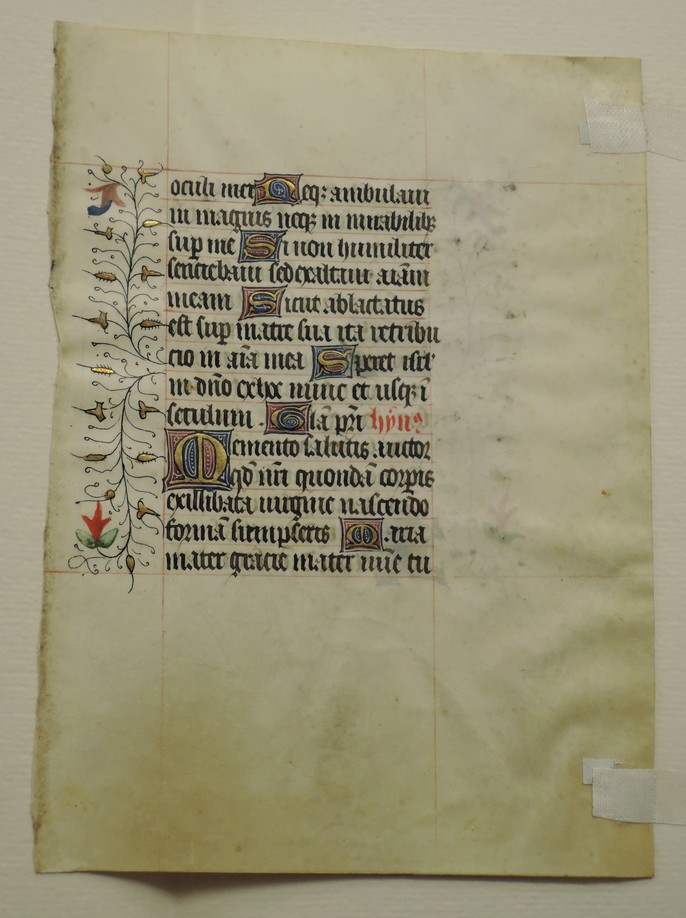 oculi mei Neqꝫ ambulaui
in magnis neqꝫ in mirabilibꝫ
sup me Si non humiliter
sentiebam sed exaltaui aīam
meam Sicut ablactatus
est sup matre sua ita retribu
cio in aīa mea Speret isrl'
in dn̄o ex hoc nunc et usqꝫ ī
seculum . Glā pr̄i hȳnꝰ
Memento salutis auctor
qd nr̄i quondā corpis
ex illibata uirgine nascendo
formā sumpseris Maria
mater gracie mater mīe tu